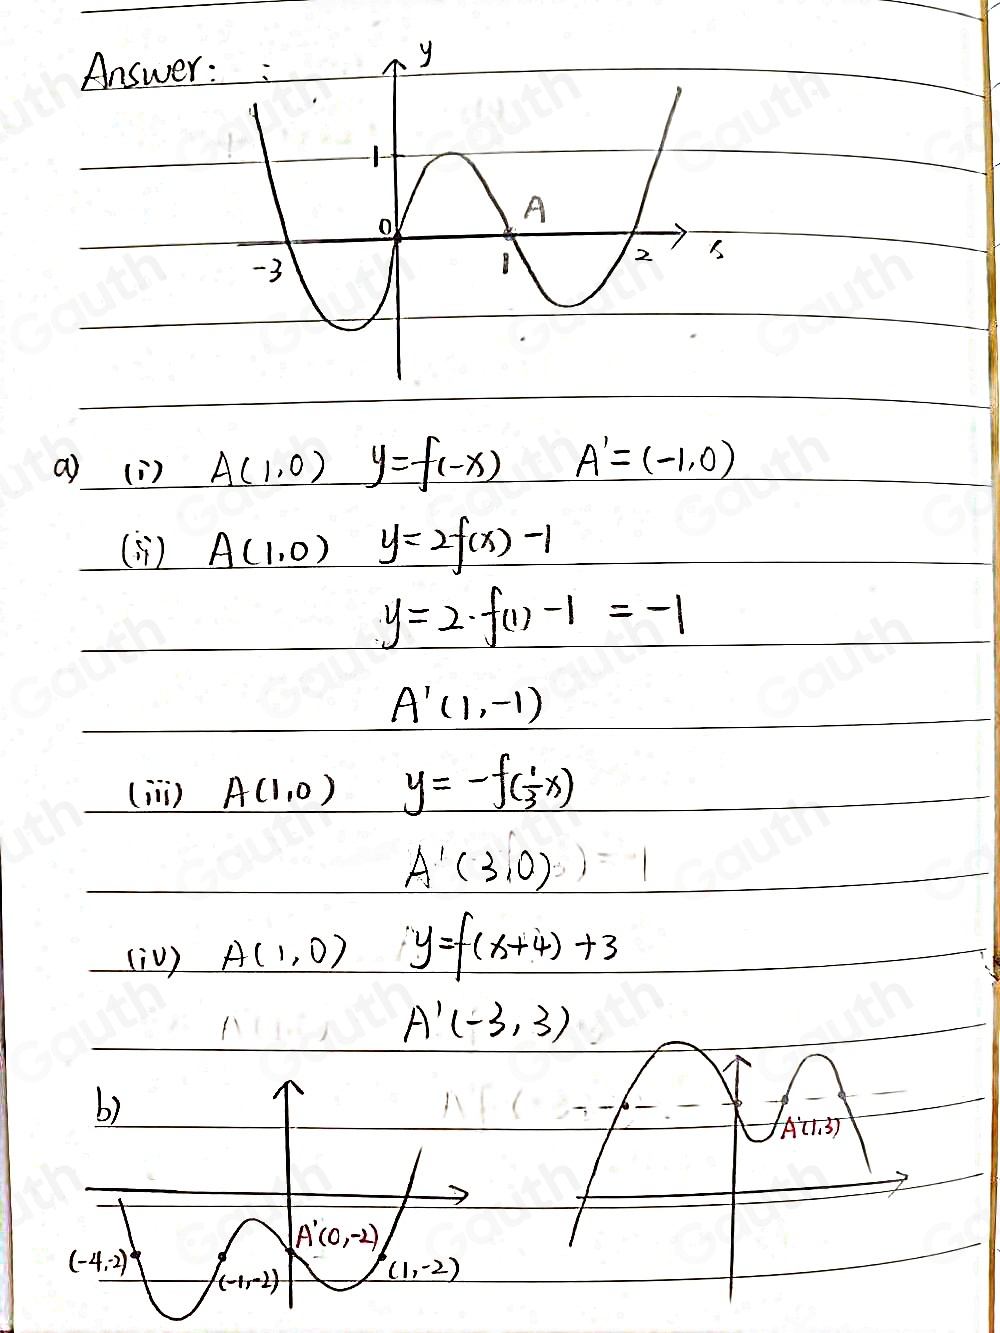 Answer: :
y
1
0
A
-3
1
2
x
a) (i) A(1,0) y=f(-x) A'=(-1,0)
(ii) A(1,0) y=2f(x)-1
y=2·f(1)-1 =-1
A'(1,-1)
(iii) A(1,0) y=-f(1/3x)
A'(3,0)
(iv) A(1,0) y=f(x+4)+3
A'(-3,3)
b)
A'(1,3)
A'(0,-2)
(-4,-2)
(-1,-2)
(1,-2)
Gauth